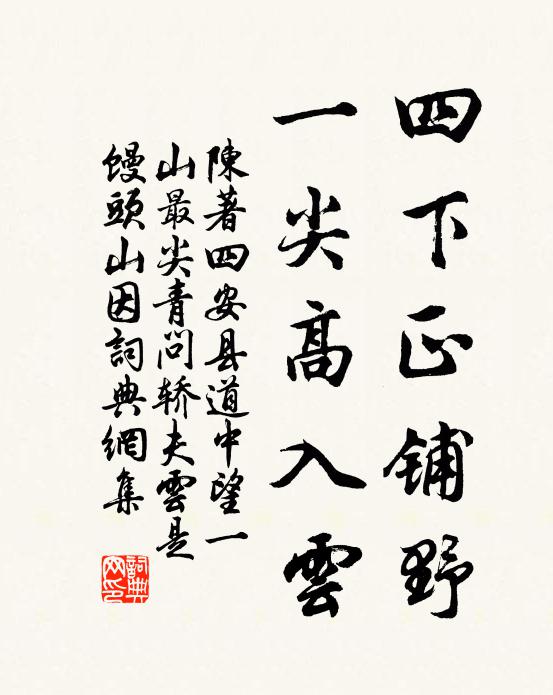 四下正铺野
一尖高入雲
陳著四安县道中望一
山最尖青問轿夫雲是
馒頭山因詞典網集
詞典网印